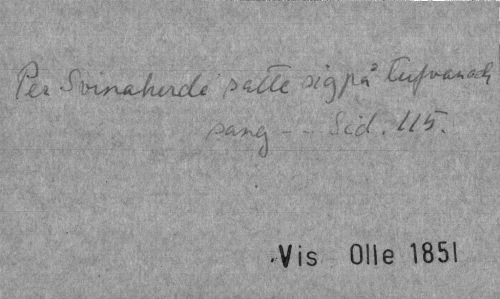 Per Svinaherde satte sig på tufvan och
sang - - Sid. 115.
Vis Olle 1851